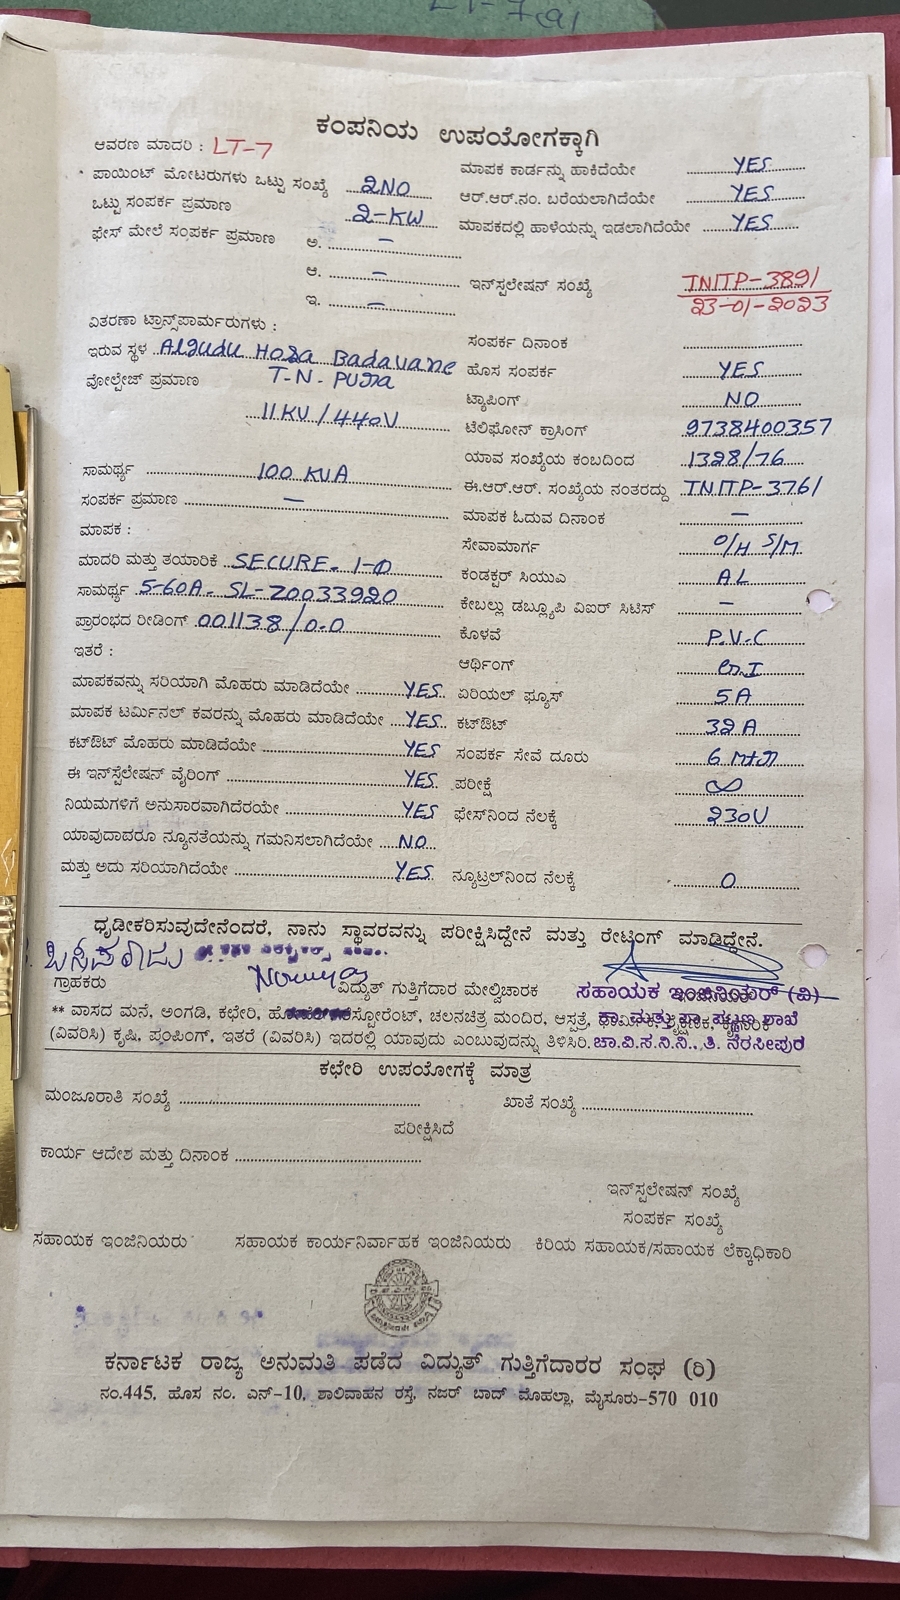 LT-7(a)
ಕಂಪನಿಯ ಉಪಯೋಗಕ್ಕಾಗಿ
ಆವರಣ ಮಾದರಿ : LT-7
ಪಾಯಿಂಟ್ ಮೋಟರುಗಳು ಒಟ್ಟು ಸಂಖ್ಯೆ 2NO
ಮಾಪಕ ಕಾರ್ಡನ್ನು ಹಾಕಿದೆಯೇ YES
ಒಟ್ಟು ಸಂಪರ್ಕ ಪ್ರಮಾಣ 2-KW
ಆರ್.ಆರ್.ನಂ. ಬರೆಯಲಾಗಿದೆಯೇ YES
ಫೇಸ್ ಮೇಲೆ ಸಂಪರ್ಕ ಪ್ರಮಾಣ ಅ. –
ಮಾಪಕದಲ್ಲಿ ಹಾಳೆಯನ್ನು ಇಡಲಾಗಿದೆಯೇ YES
ಆ. –
ಇನ್ಸ್ಟಲೇಷನ್ ಸಂಖ್ಯೆ TNITP-3891
ಇ. –
23-01-2023
ವಿತರಣಾ ಟ್ರಾನ್ಸ್‌ಪಾರ್ಮರುಗಳು :
ಸಂಪರ್ಕ ದಿನಾಂಕ
ಇರುವ ಸ್ಥಳ Algudu Hosa Badavane
ಹೊಸ ಸಂಪರ್ಕ YES
T-N-Pura
ವೋಲ್ಟೇಜ್ ಪ್ರಮಾಣ 11KV/440V
ಟ್ಯಾಪಿಂಗ್ NO
ಟೆಲಿಫೋನ್ ಕ್ರಾಸಿಂಗ್ 9738400357
ಯಾವ ಸಂಖ್ಯೆಯ ಕಂಬದಿಂದ 1328/76
ಸಾಮರ್ಥ್ಯ 100 KVA
ಈ.ಆರ್.ಆರ್. ಸಂಖ್ಯೆಯ ನಂತರದ್ದು TNITP-3761
ಸಂಪರ್ಕ ಪ್ರಮಾಣ –
ಮಾಪಕ ಓದುವ ದಿನಾಂಕ –
ಮಾಪಕ :
ಸೇವಾಮಾರ್ಗ O/H S/M
ಮಾದರಿ ಮತ್ತು ತಯಾರಿಕೆ SECURE. 1-Φ
ಕಂಡಕ್ಟರ್ ಸಿಯುಎ AL
ಸಾಮರ್ಥ್ಯ 5-60A- SL-Z0033920
ಕೇಬಲ್ಲು ಡಬ್ಲ್ಯೂಪಿ ವಿಐರ್ ಸಿಟಿಸ್ –
ಪ್ರಾರಂಭದ ರೀಡಿಂಗ್ 001138/0-0
ಕೊಳವೆ P.V.C
ಇತರೆ :
ಆರ್ಥಿಂಗ್
ಮಾಪಕವನ್ನು ಸರಿಯಾಗಿ ಮೊಹರು ಮಾಡಿದೆಯೇ YES
ಏರಿಯಲ್ ಫ್ಯೂಸ್ 5A
ಮಾಪಕ ಟರ್ಮಿನಲ್ ಕವರನ್ನು ಮೊಹರು ಮಾಡಿದೆಯೇ YES
ಕಟ್‌ಔಟ್ 32A
ಕಟ್‌ಔಟ್ ಮೊಹರು ಮಾಡಿದೆಯೇ YES
ಸಂಪರ್ಕ ಸೇವೆ ದೂರು 6 Mtr
ಈ ಇನ್‌ಸ್ಟೆಲೇಷನ್ ವೈರಿಂಗ್ YES
ಪರೀಕ್ಷೆ ∞
ನಿಯಮಗಳಿಗೆ ಅನುಸಾರವಾಗಿದೆರಯೇ YES
ಫೇಸ್‌ನಿಂದ ನೆಲಕ್ಕೆ 230V
ಯಾವುದಾದರೂ ನ್ಯೂನತೆಯನ್ನು ಗಮನಿಸಲಾಗಿದೆಯೇ NO
ಮತ್ತು ಅದು ಸರಿಯಾಗಿದೆಯೇ YES
ನ್ಯೂಟ್ರಲ್‌ನಿಂದ ನೆಲಕ್ಕೆ 0
ಧೃಡೀಕರಿಸುವುದೇನೆಂದರೆ, ನಾನು ಸ್ಥಾವರವನ್ನು ಪರೀಕ್ಷಿಸಿದ್ದೇನೆ ಮತ್ತು ರೇಟಿಂಗ್ ಮಾಡಿದ್ದೇನೆ.
ಗ್ರಾಹಕರು
ವಿದ್ಯುತ್ ಗುತ್ತಿಗೆದಾರ ಮೇಲ್ವಿಚಾರಕ
ಸಹಾಯಕ ಇಂಜಿನಿಯರ್ (ವಿ)
** ವಾಸದ ಮನೆ, ಅಂಗಡಿ, ಕಛೇರಿ, ಚಲನಚಿತ್ರ ಮಂದಿರ, ಆಸ್ಪತ್ರೆ,
ಕಾ. ಮತ್ತು ಪಾ. ಪಟ್ಟಣ ಶಾಖೆ
(ವಿವರಿಸಿ) ಕೃಷಿ, ಪಂಪಿಂಗ್, ಇತರೆ (ವಿವರಿಸಿ) ಇದರಲ್ಲಿ ಯಾವುದು ಎಂಬುವುದನ್ನು ತಿಳಿಸಿರಿ.
ಚಾ.ವಿ.ಸ.ನಿ.ನಿ., ತಿ. ನರಸೀಪುರ
ಕಛೇರಿ ಉಪಯೋಗಕ್ಕೆ ಮಾತ್ರ
ಮಂಜೂರಾತಿ ಸಂಖ್ಯೆ
ಖಾತೆ ಸಂಖ್ಯೆ
ಪರೀಕ್ಷಿಸಿದೆ
ಕಾರ್ಯ ಆದೇಶ ಮತ್ತು ದಿನಾಂಕ
ಇನ್‌ಸ್ಪಲೇಷನ್ ಸಂಖ್ಯೆ
ಸಂಪರ್ಕ ಸಂಖ್ಯೆ
ಸಹಾಯಕ ಇಂಜಿನಿಯರು ಸಹಾಯಕ ಕಾರ್ಯನಿರ್ವಾಹಕ ಇಂಜಿನಿಯರು ಕಿರಿಯ ಸಹಾಯಕ/ಸಹಾಯಕ ಲೆಕ್ಕಾಧಿಕಾರಿ
ಕರ್ನಾಟಕ ರಾಜ್ಯ ಅನುಮತಿ ಪಡೆದ ವಿದ್ಯುತ್ ಗುತ್ತಿಗೆದಾರರ ಸಂಘ (ರಿ)
ನಂ.445, ಹೊಸ ನಂ. ಎನ್-10, ಶಾಲಿವಾಹನ ರಸ್ತೆ, ನಜರ್ ಬಾದ್ ಮೊಹಲ್ಲಾ, ಮೈಸೂರು-570 010